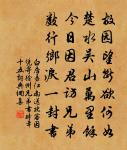 故園望斷欲何如
楚水吳山萬里餘
今日因君訪兄弟
數行鄉淚一封書
白居易江南送北客因
憑寄徐州兄弟書時年
十五詞典網集